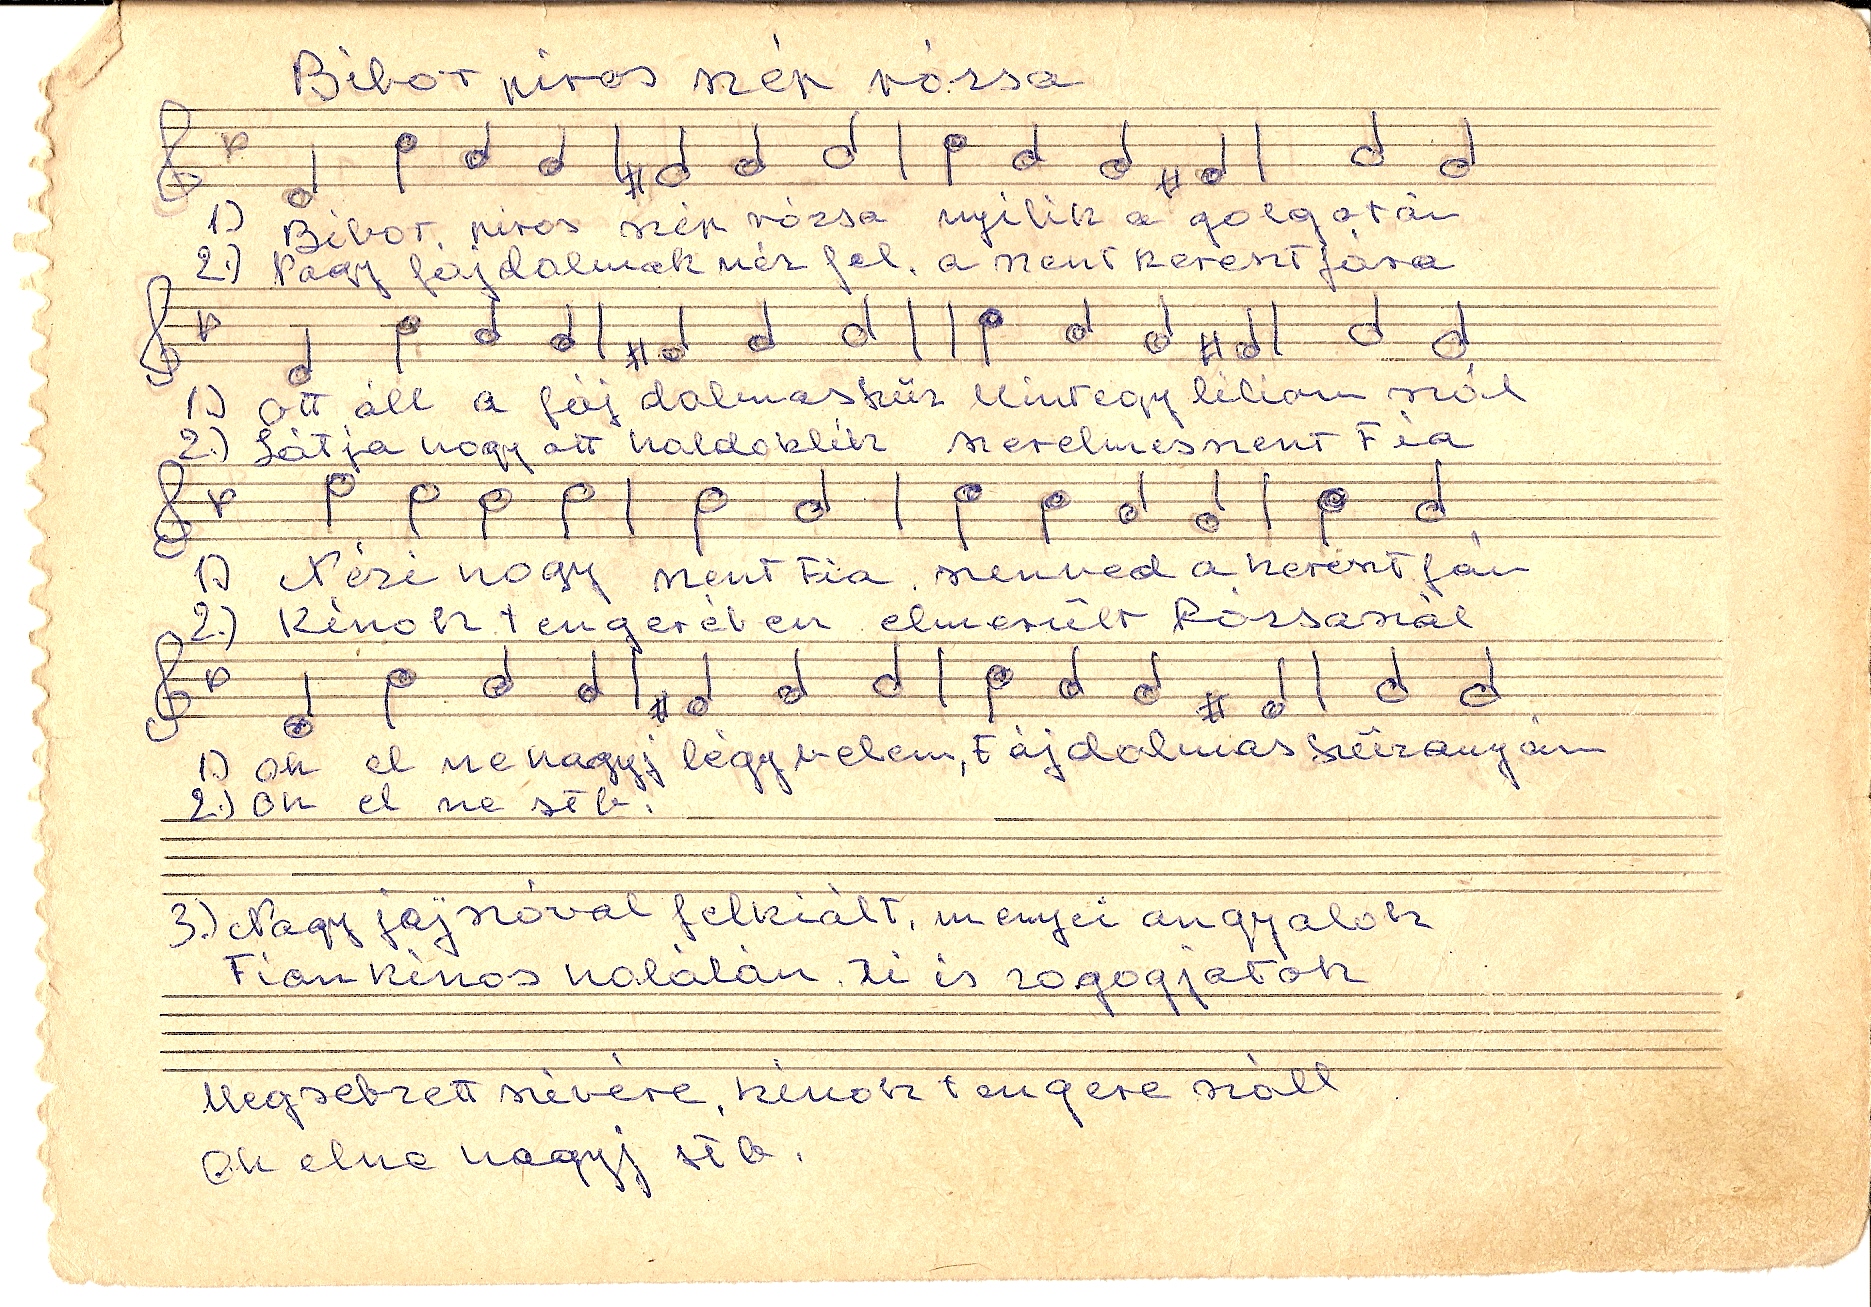 Bibor piros szép rózsa
1) Bibor, piros szép rózsa nyilik a golgotán
2.) Nagy fájdalmak néz fel, a szent keresztfára
1.) Ott áll a fájdalmasszűz Mintegy liliom szál
2.) Látja hogy ott haldoklik szerelmesszent Fia
1.) Nézi hogy szent Fia, szenved a keresztfán
2.) Kinok tengerében elmerült Rózsaszál
1.) Oh el ne hagyj légy velem, Fájdalmas szűzanyám
2.) Oh el ne stb.
3.) Nagy jajszóval felkiált, menyei angyalok
Fiam kinos halálán. Ti is zogogjatok
Megsebzett szivére, kinok tengere száll
Oh elne hagyj stb.